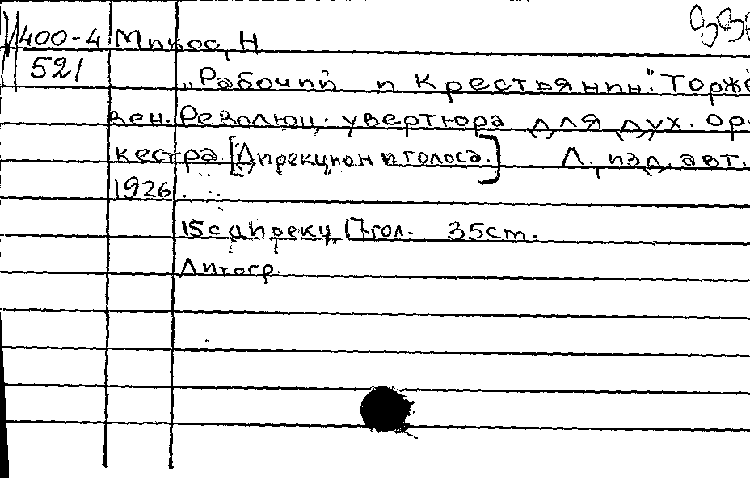 400-4 Микос, Н
521
„Рабочий и Крестьянин". Торже
вен. Революц. увертюра для дух. ор
кестра. [Дирекцион и голоса.] Л., изд. авт.
1926.
15с дирекц. 17гол. 35см.
Литогр.